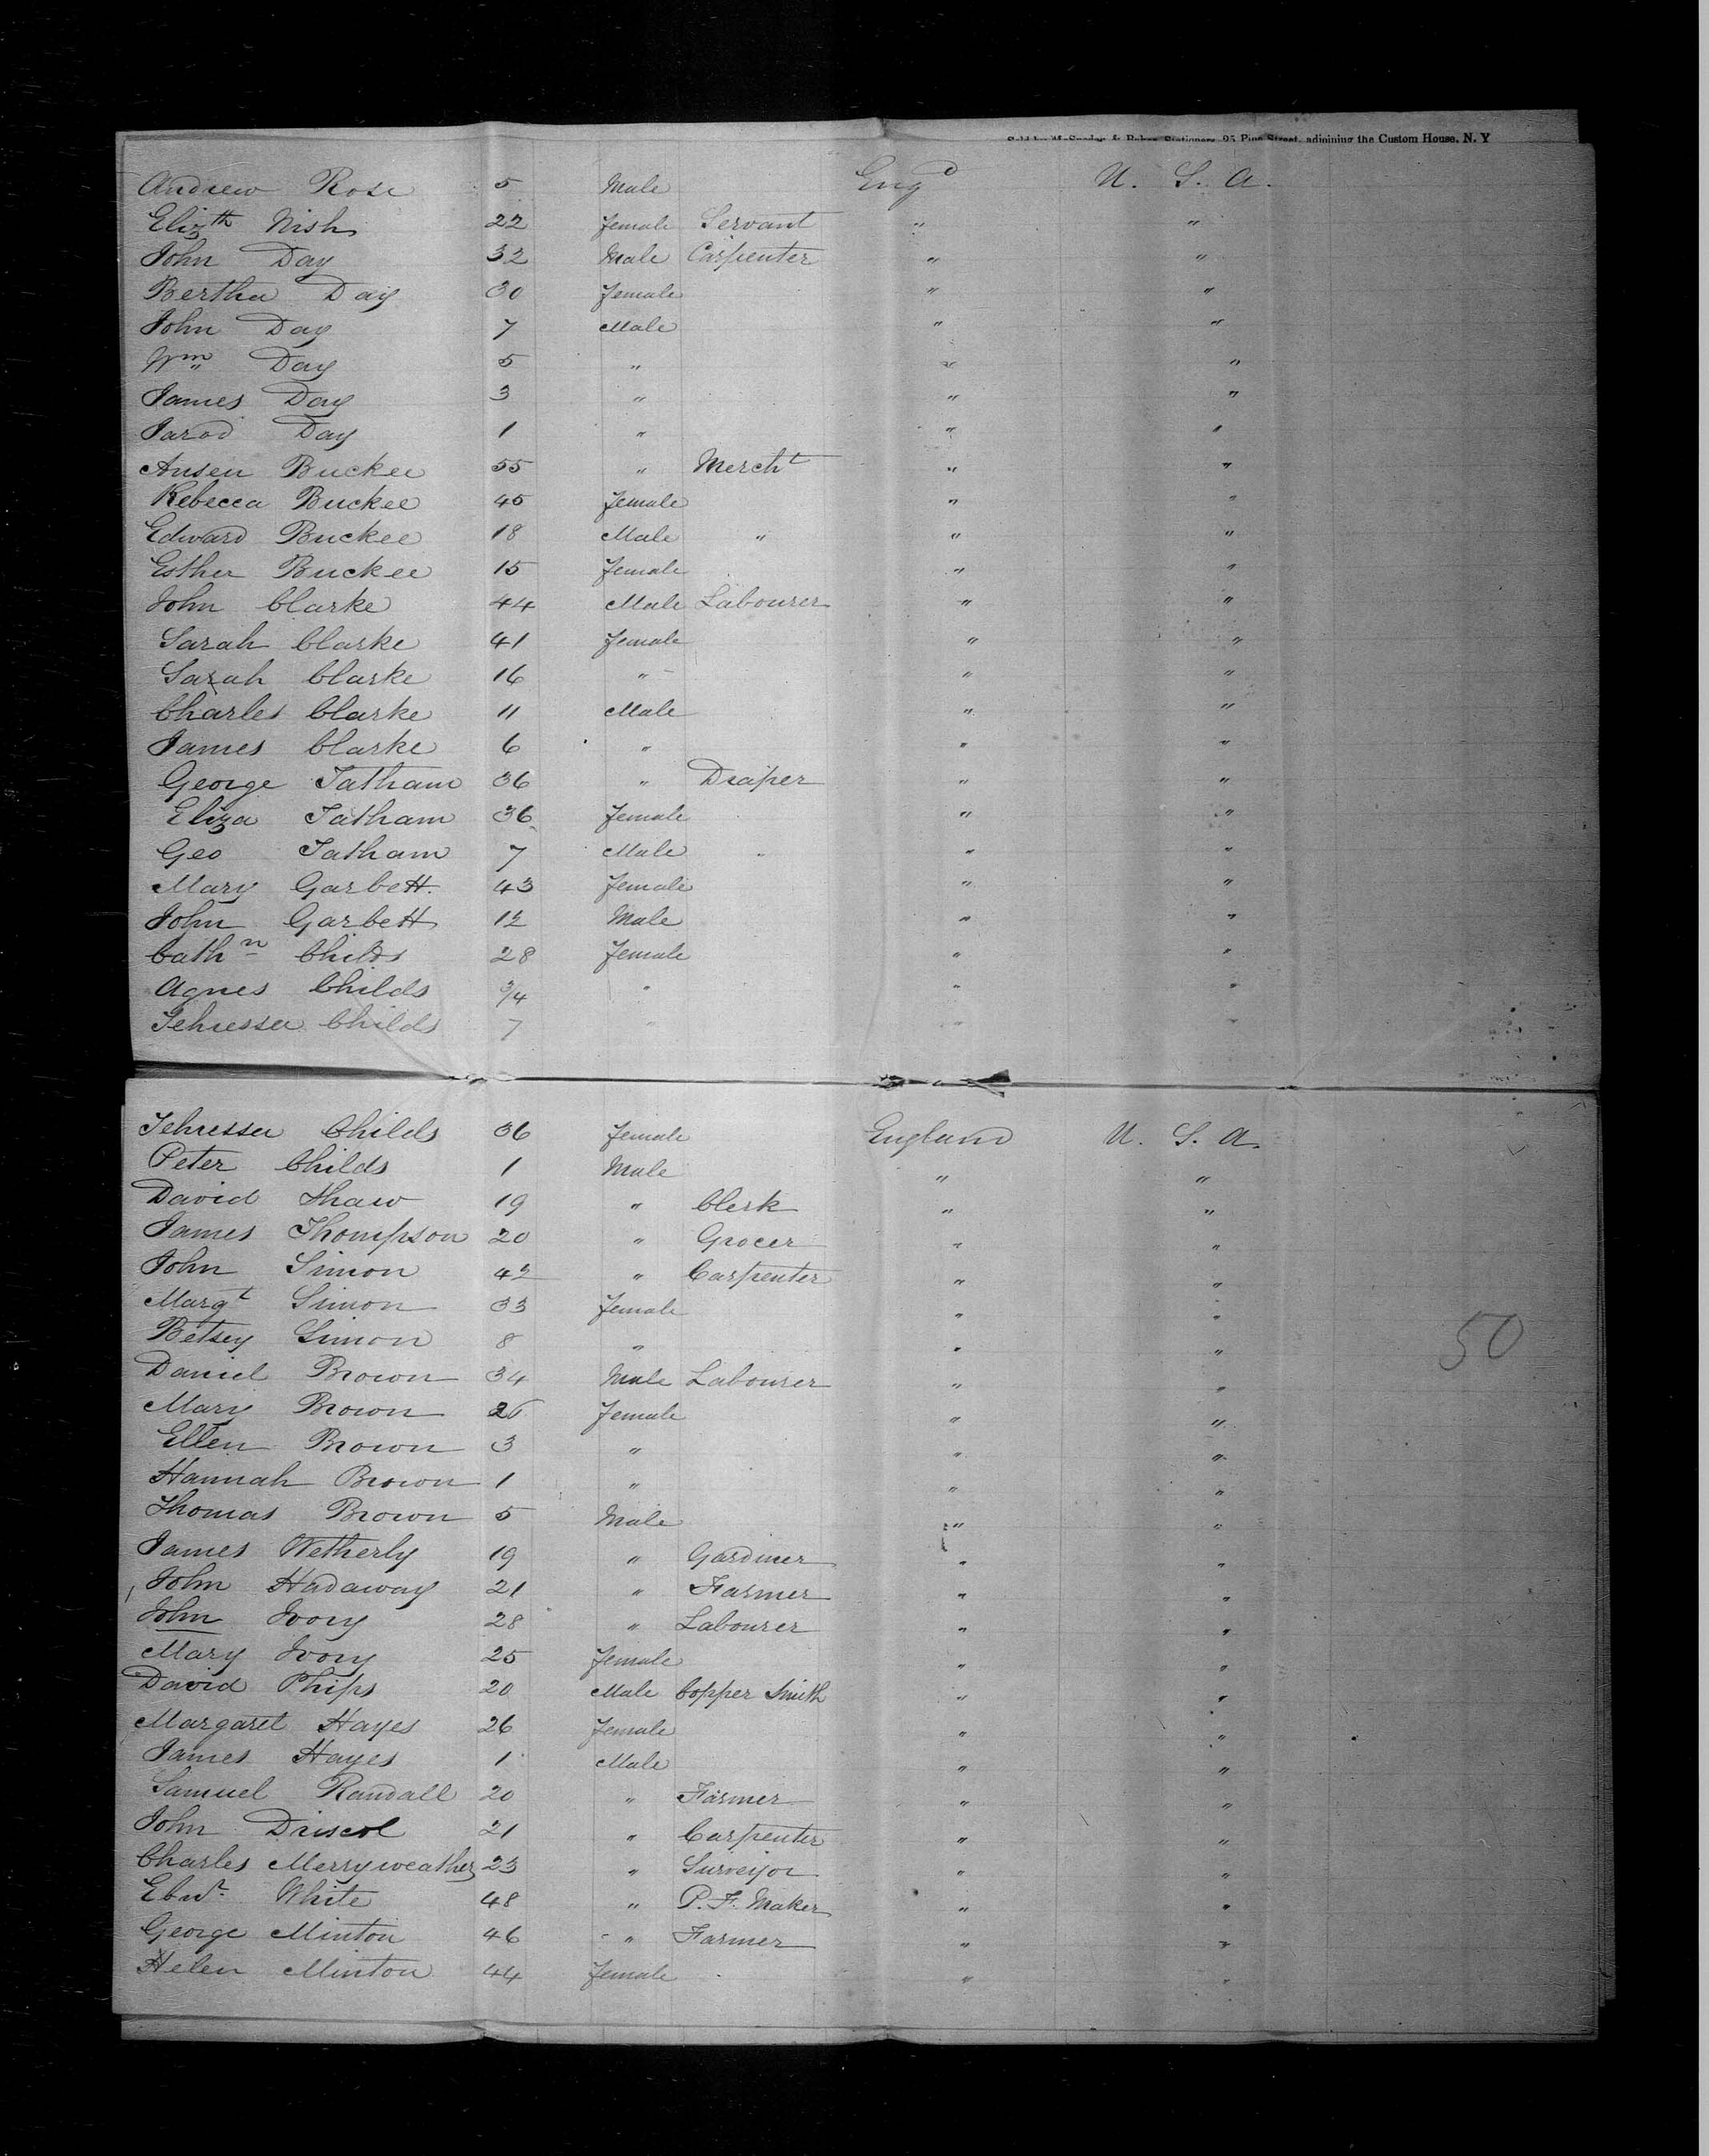 Sold by McSpedon & Baker, Stationers, 25 Pine Street, adjoining the Custom House, N. Y
Andrew Rose 5 Male Engd U. S. A.
Elizth Nish 22 Female Servant " "
John Day 32 Male Carpenter " "
Bertha Day 30 Female " "
John Day 7 Male " "
Wm Day 5 " " "
James Day 3 " " "
Jarod Day 1 " " "
Ansen Buckee 55 " Mercht " "
Rebecca Buckee 45 Female " "
Edward Buckee 18 Male " " "
Esther Buckee 15 Female " "
John Clarke 44 Male Labourer " "
Sarah Clarke 41 Female " "
Sarah Clarke 16 " " "
Charles Clarke 11 Male " "
James Clarke 6 " " "
George Tatham 36 " Draper " "
Eliza Tatham 36 Female " "
Geo Tatham 7 Male " "
Mary Garbett 43 Female " "
John Garbett 12 Male " "
Cathn Childs 28 Female " "
Agnes Childs 3/4 " " "
Tehressa Childs 7 " " "
Tehressa Childs 36 Female England U. S. A.
Peter Childs 1 Male " "
David Shaw 19 " Clerk " "
James Thompson 20 " Grocer " "
John Simon 42 " Carpenter " "
Margt Simon 33 Female " "
Betsey Simon 8 " " "
Daniel Brown 34 Male Labourer " "
Mary Brown 26 Female " "
Ellen Brown 3 " " "
Hannah Brown 1 " " "
Thomas Brown 5 Male " "
James Wetherly 19 " Gardiner " "
John Hadaway 21 " Farmer " "
John Ivory 28 " Labourer " "
Mary Ivory 25 Female " "
David Phips 20 Male Copper Smith " "
Margaret Hayes 26 Female " "
James Hayes 1 Male " "
Samuel Randall 20 " Farmer " "
John Driscol 21 " Carpenter " "
Charles Merryweather 23 " Surveyor " "
White 48 " P. F. Maker " "
George Minton 46 " Farmer " "
Helen Minton 44 Female " "
50